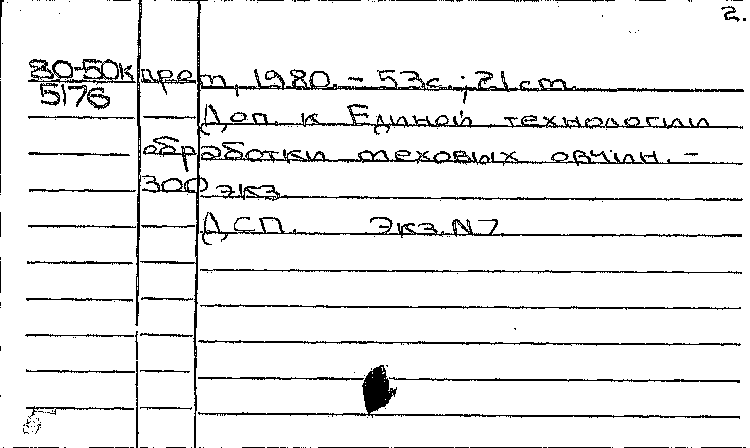 2.
80-50к пром, 1980. - 53с.; 21 см.
5176
Доп. к Единой технологии
обработки меховых овчин. -
300 экз.
ДСП. Экз. N7